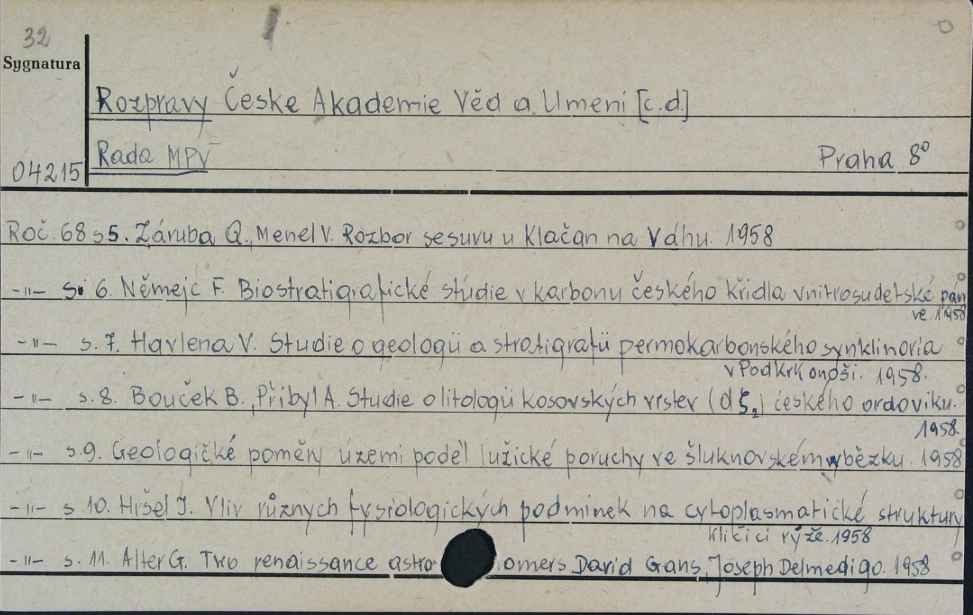 32
Sygnatura
Rozpravy České Akademie Věd a Umeni [c.d.]
Rada MPV
Praha 8°
04215
Roč. 68 s 5. Záruba Q., Menel V. Rozbor sesuvu u Klačan na Váhu. 1958
-"- s. 6. Němejc F. Biostratigrafické stúdie v karbonu českého křidla vnitrosudetské pán
ve. 1958
-"- s. 7. Havlena V. Studie o geologii a stratigrafii permokarbonského synklinoria
v Podkrkonoši. 1958.
-"- s. 8. Bouček B., Přibyl A. Studie o litologii kosovských vrstev (dζ₂) českého ordoviku.
1958.
-"- s. 9. Geologičké poměry území podél lužické poruchy ve šluknovském výběžku. 1958
-"- s 10. Hršel J. Vliv různych fysiologických podminek na cytoplasmatické struktury
kličici rýže. 1958
-"- s. 11. Alter G. Two renaissance astro omers David Gans, Joseph Delmedigo. 1958